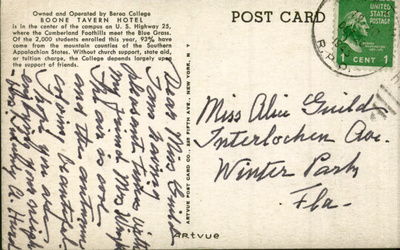 Owned and Operated by Berea College
BOONE TAVERN HOTEL
is in the center of the campus on U. S. Highway 25,
where the Cumberland Foothills meet the Blue Grass.
Of the 2,000 students enrolled this year, 93% have
come from the mountain counties of the Southern
Appalachian States. Without church support, state aid,
or tuition charge, the College depends largely upon
the support of friends.
POST CARD
1 CENT 1
R.P.O.
Dear Miss Guild
I am having
pleasant times with
my friend Mrs
The air is cool
and the
very beautiful.
I hope you are
ARTVUE POST CARD CO., 225 FIFTH AVE., NEW YORK, N. Y.
Artvue
Miss Alice Guild
Interlochen Ave.
Winter Park
Fla-